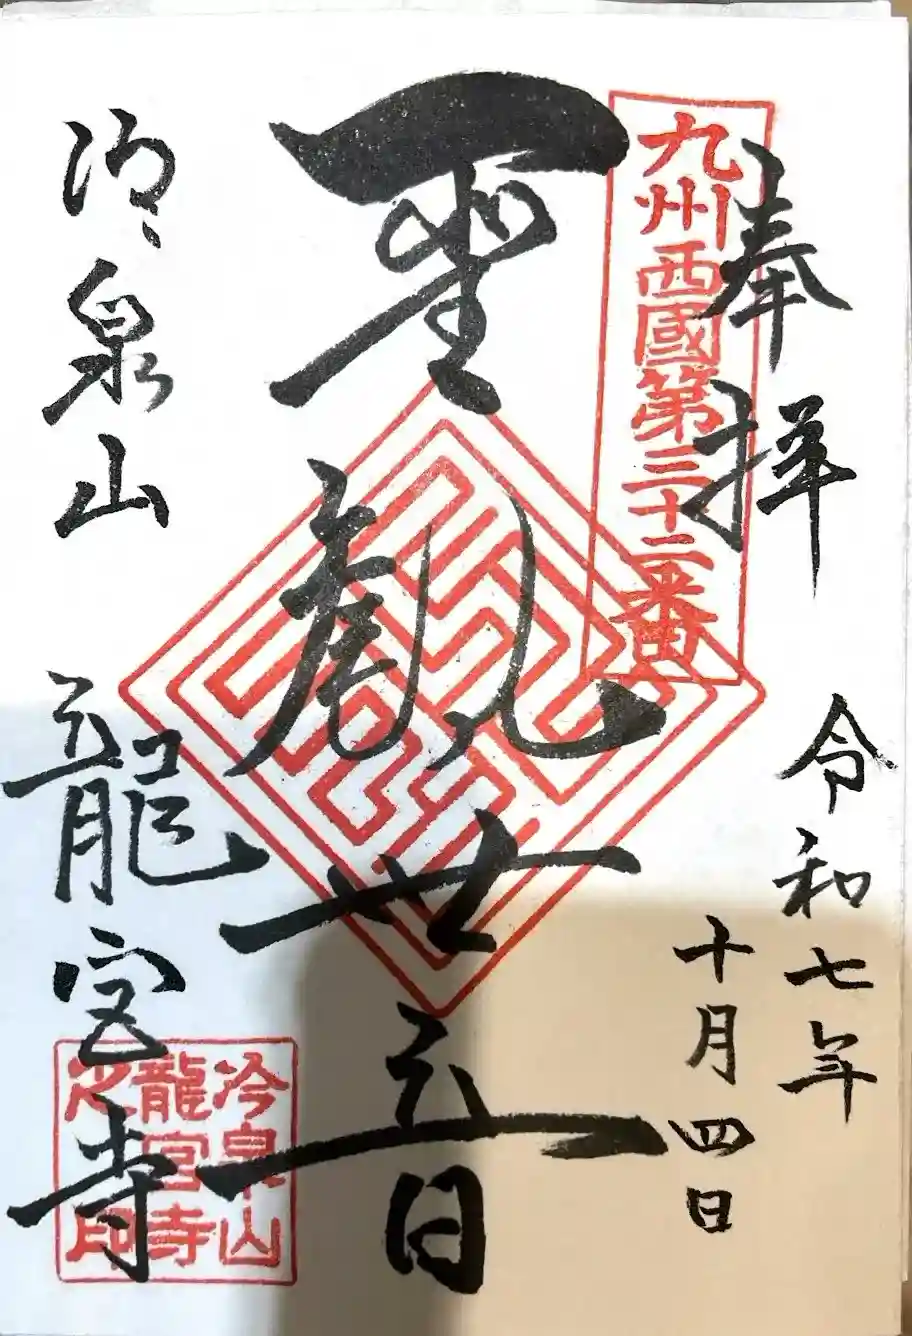 奉拝
九州西國第三十二番
令和七年
十月四日
聖觀世音
冷泉山
龍宮寺
冷泉山
龍宮寺
之印